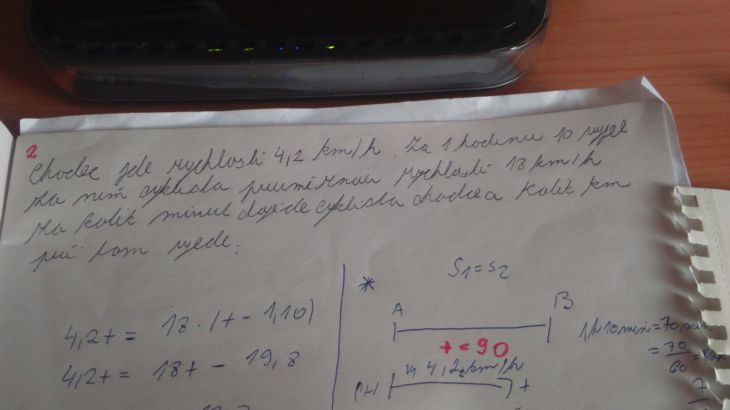 2
Chodec jde rychlostí 4,2 km/h. Za 1 hodinu 10 vyjel
za ním cyklista průměrnou rychlostí 18 km/h
za kolik minut dojede cyklista chodce a kolik km
při tom ujede.
4,2t = 18 · (t - 1,10)
4,2t = 18t - 19,8
*
S1 = S2
A B
t = 90
CH v 4,2 km/h t
1h 10 min = 70 min
= 70/60
7